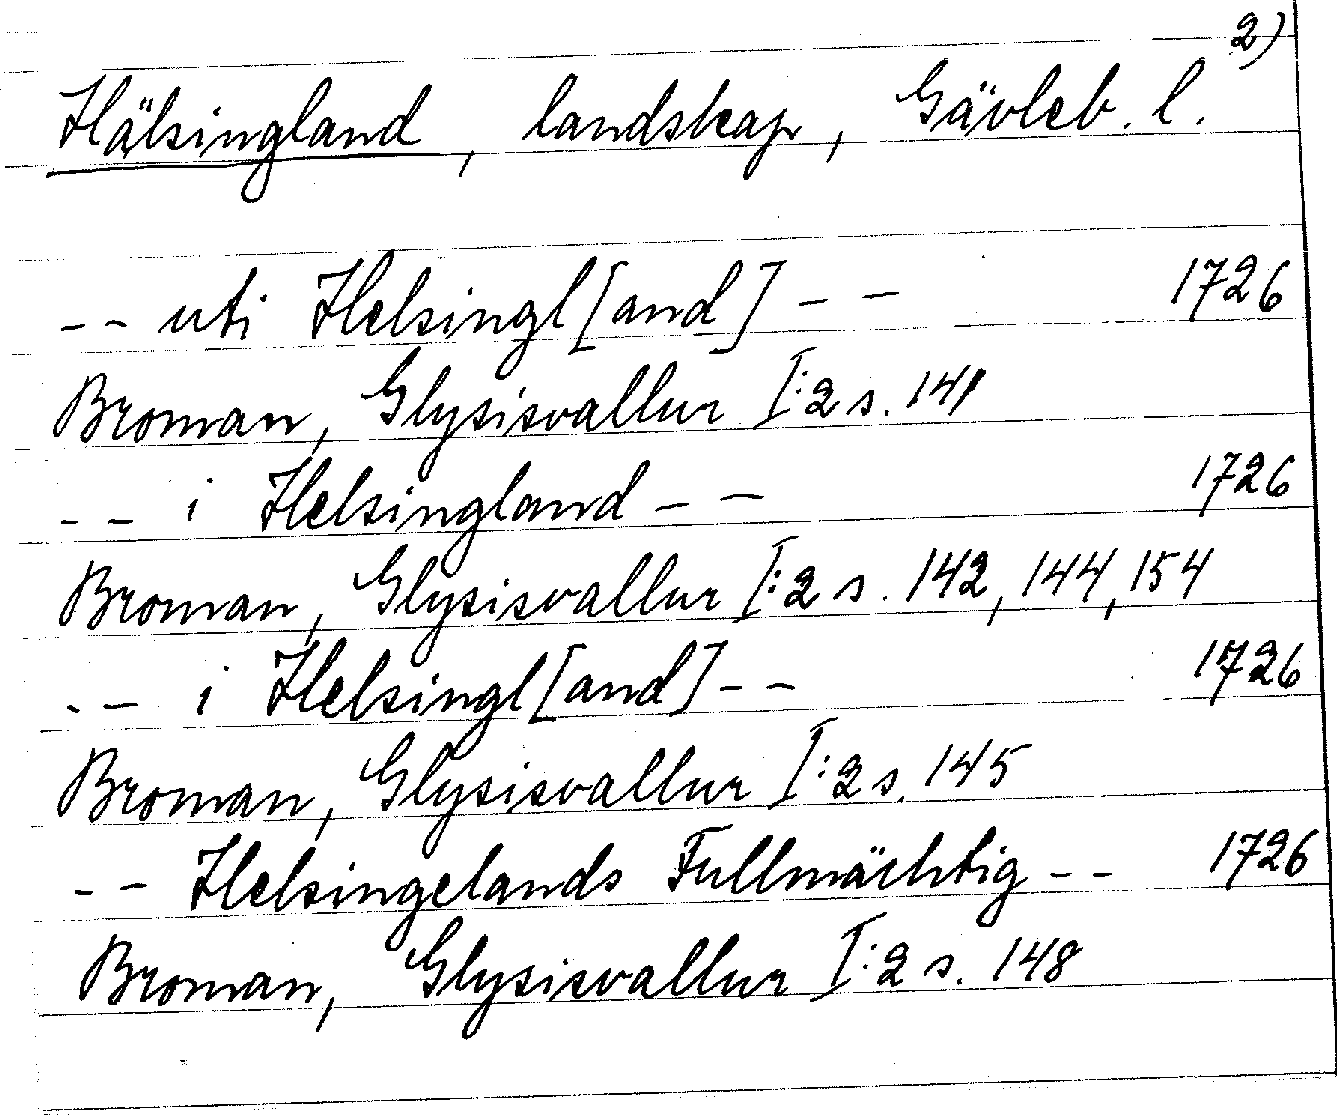 2)
Hälsingland, landskap, Gävleb. l.
-- uti Helsingl[and] -- 1726
Broman, Glysisvallur I:2 s. 141
-- i Helsingland -- 1726
Broman, Glysisvallur I:2 s. 142, 144, 154
-- i Helsingl[and] -- 1726
Broman, Glysisvallur I:2 s. 145
-- Helsingelands Fullmächtig -- 1726
Broman, Glysisvallur I:2 s. 148